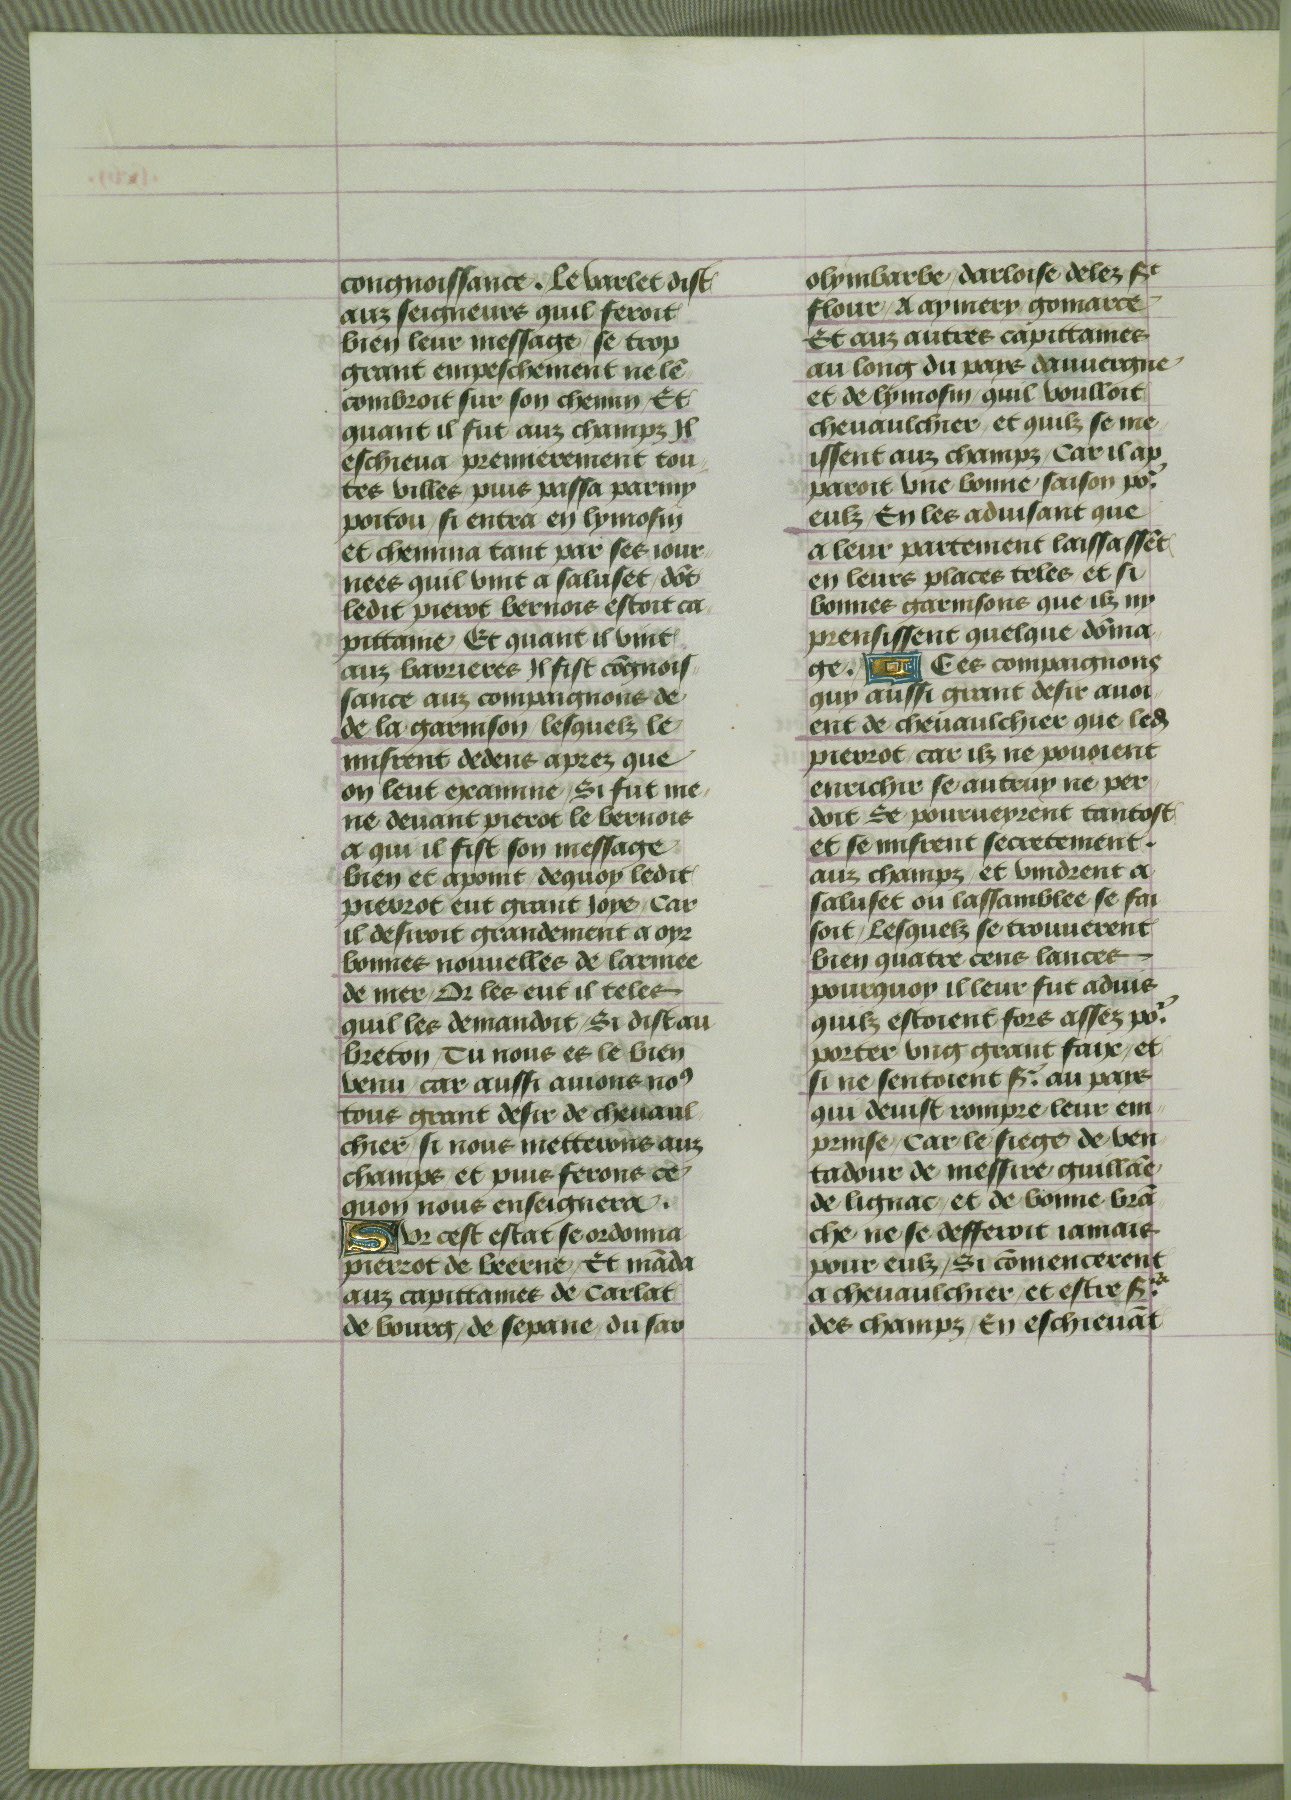 congnoissance. Le varlet dist
aux seigneurs quil feroit
bien leur message / se trop
grant empeschement ne lē
combroit sur son chemin / Et
quant il fut aux champz Il
eschieua premierement tou
tes villes / puis passa parmy
poitou / si entra en lymosin
et chemina tant par ses iour
nees quil vint a saluset / dōt
ledit pierot bernois estoit ca
pittaine / Et quant il vint
aux barrieres Il fist cōgnois
sance aux compaignons de
de la garnison / lesquelz le
misrent dedens aprez que
on leut examine / Si fut me
ne deuant pierot le bernois
a qui il fist son message
bien et apoint / dequoy ledit
pierrot eut grant Joye / Car
il desiroit grandement a oyr
bonnes nouuelles de larmee
de mer / Or les eut il teles
quil les demandoit / Si dist au
breton / Tu nous es le bien
venu / car aussi auions noꝰ
tous grant desir de cheuaul
chier / si nous metterons aux
champs et puis ferons ce
quon nous enseignera.
Sur cest estat se ordonna
pierrot de beerne / Et māda
aux capittaines de Carlat
de bourg / de sepane / du sar
olymbarbe / darloise delez sᵗ
flour / A aymery gomarce
Et aux autres capittaines
au long du pays dauuergne
et de lymosin / quil voulloit
cheuaulchier / et quilz se me
issent aux champz / Car il ap
paroit vne bonne saison poʳ
eulz / En les aduisant que
a leur partement laissassēt
en leurs places teles et si
bonnes garnisons que ilz ny
prensissent quelque dōma
ge. Ces compaignons
quy aussi grant desir auoi
ent de cheuaulchier que led
pierrot / car ilz ne pouoient
enrichir se autruy ne per
doit / Se pourueyrent tantost
et se misrent secretement
aux champz / et vindrent a
saluset ou lassamblee se fai
soit / Lesquelz se trouuerent
bien quatre cens lances
pourquoy il leur fut aduis
quilz estoient fors assez poʳ
porter vng grant faix / et
si ne sentoient sʳ au pays
qui deuist rompre leur em
prinse / Car le siege de ven
tadour de messire guillāe
de lignac / et de bonne brā
che ne se defferoit iamais
pour eulz / Si cōmencerent
a cheuaulchier / et estre sʳˢ
des champz / En eschieuāt